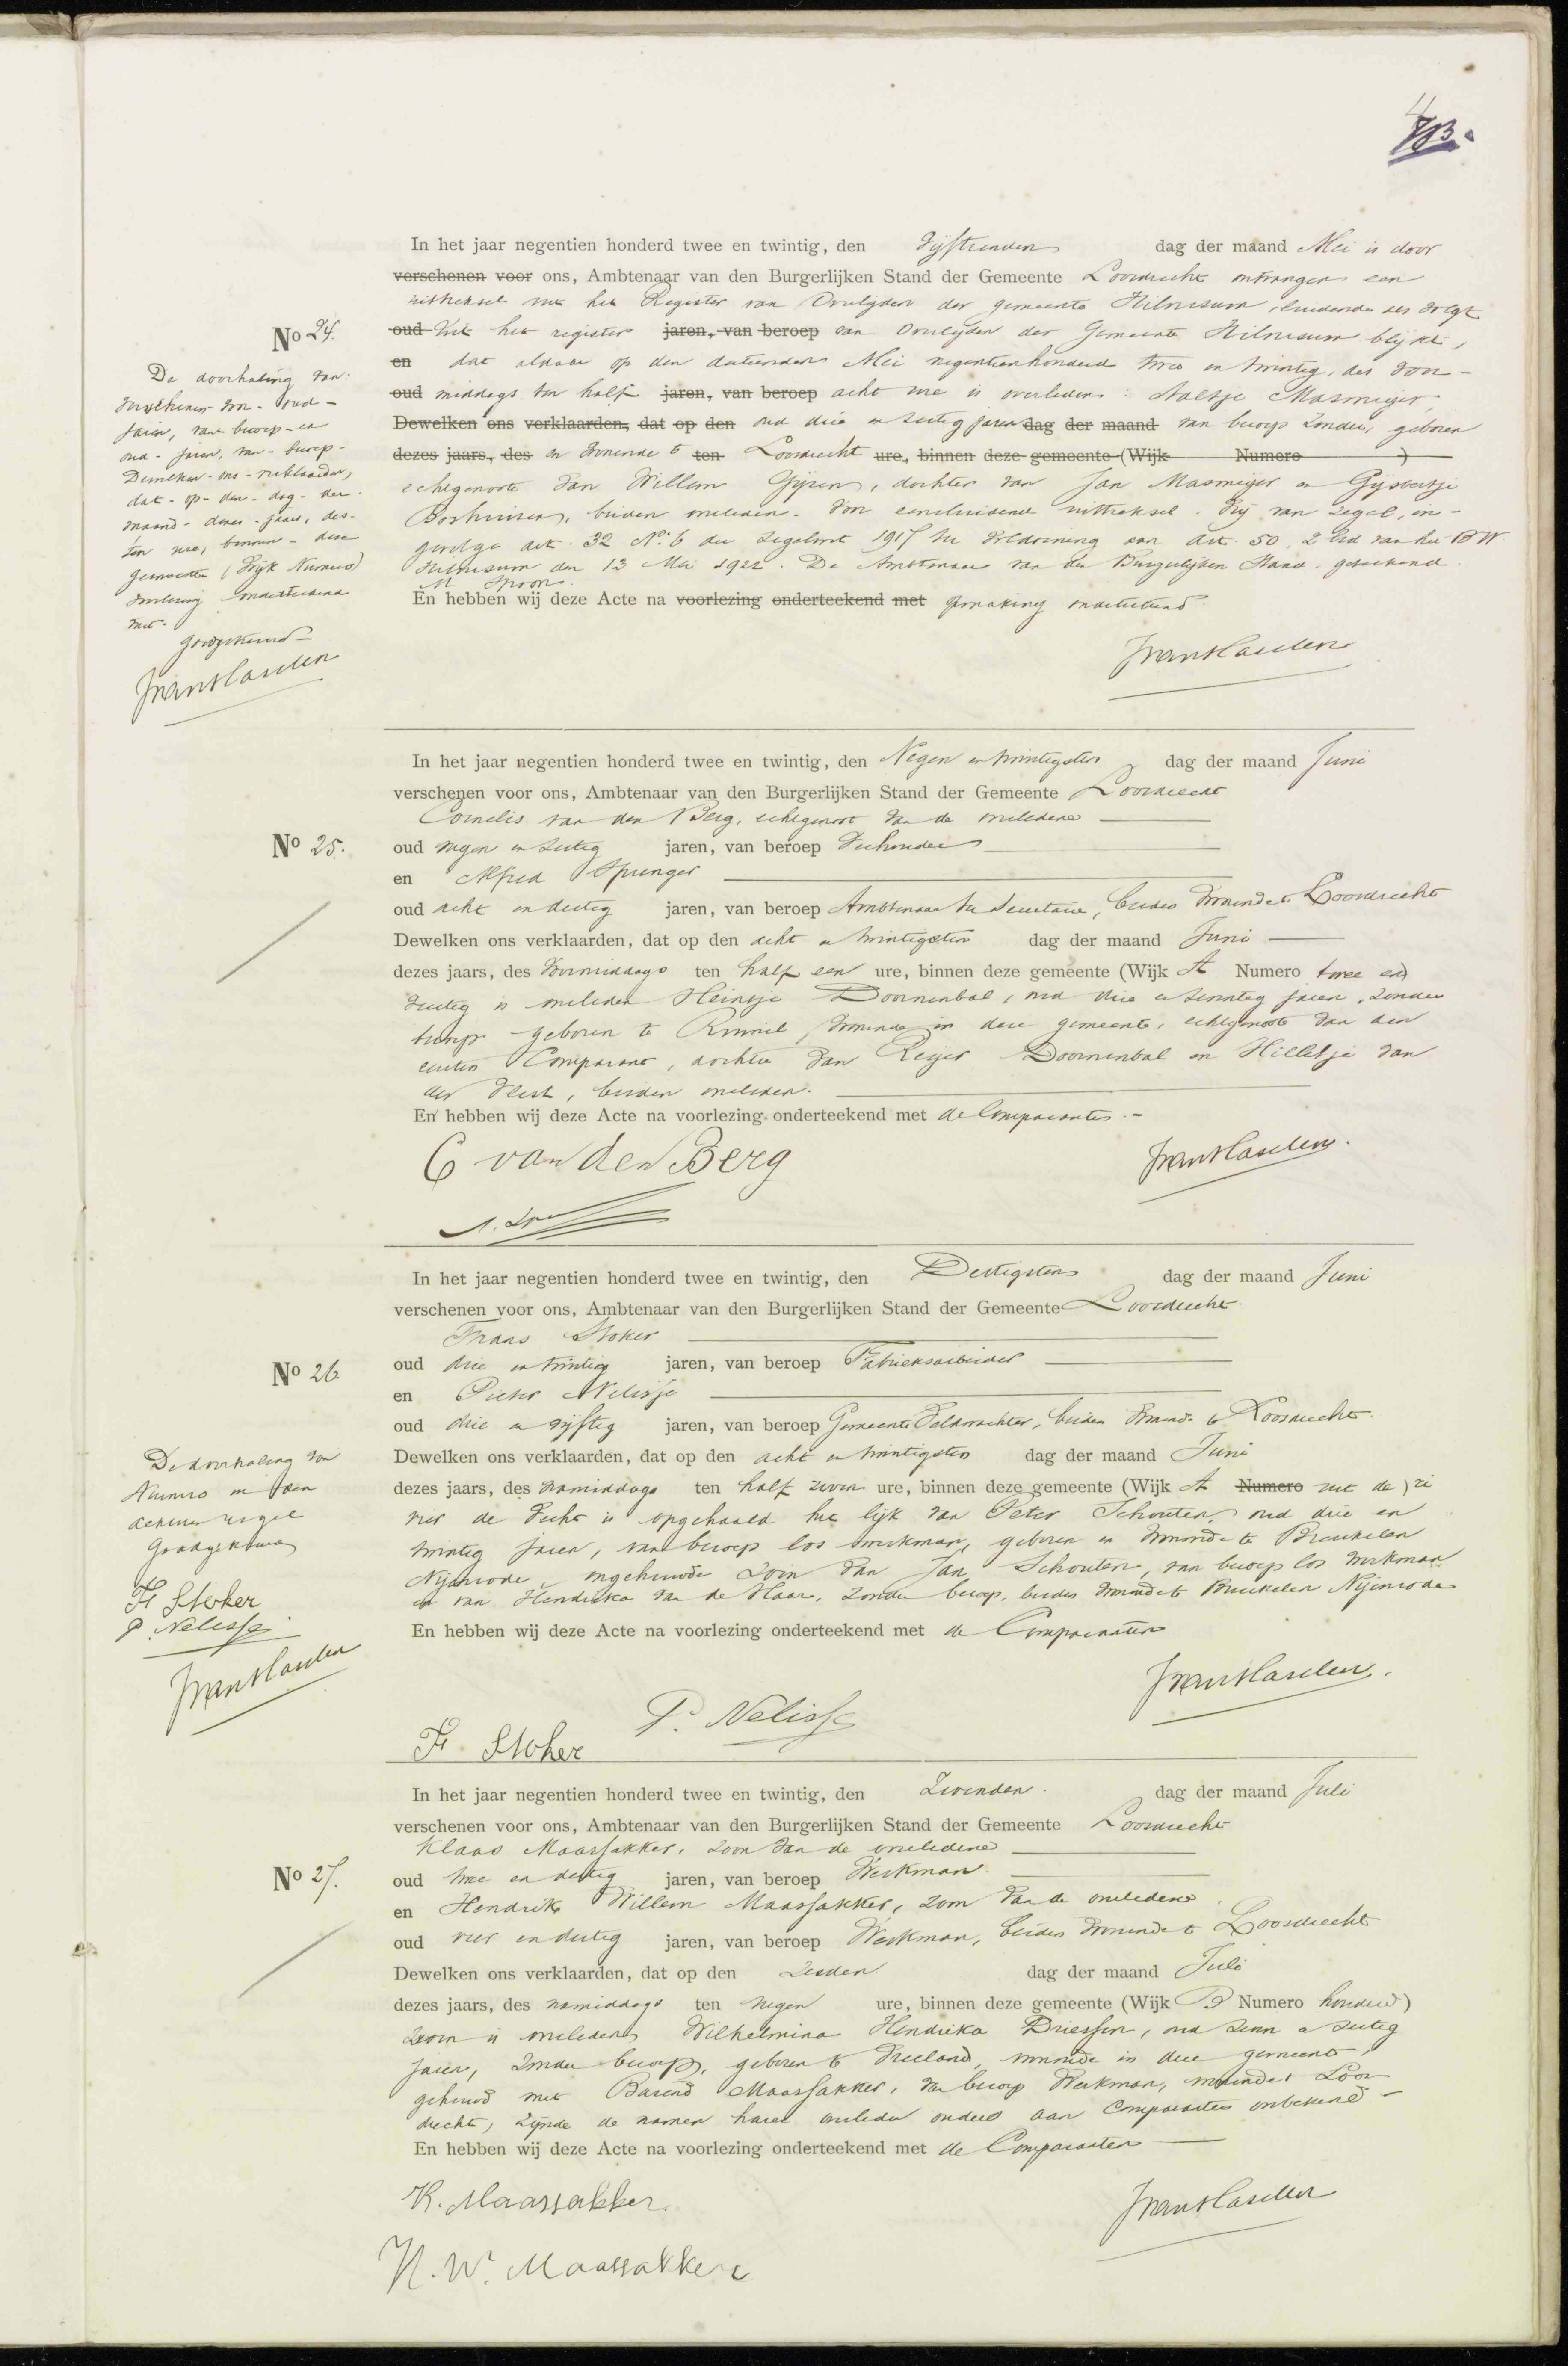 In het jaar negentien honderd twee en twintig, den vijftienden dag der maand Mei is door
verschenen voor ons, Ambtenaar van den Burgerlijken Stand der Gemeente Loosdrecht ontvangen een
uittreksel uit het Register van Overlijden der gemeente Hilversum, luidende als volgt
No 24.
oud Uit het register jaren, van beroep van Overlijden der Gemeente Hilversum blijkt,
en dat aldaar op den dertienden Mei negentienhonderd twee en twintig, des voor-
oud middags ten half jaren, van beroep acht ure is overleden: Aaltje Masmeijer,
Dewelken ons verklaarden, dat op den oud drie en zestig jaren dag der maand van beroep zonder, geboren
dezes jaars, des en wonende te ten Loosdrecht ure, binnen deze gemeente (Wijk Numero )
echtgenoote van Willem Gijzen, dochter van Jan Masmeijer en Gijsbertje
Boshuizen, beiden overleden. Voor eensluidend uittreksel. Vrij van zegel, in-
gevolge art. 32 No. 6 der Zegelwet 1917 ter voldoening aan art. 50, 2e lid van het BW
Hilversum den 13 Mei 1922. De Ambtenaar van den Burgerlijken Stand. geteekend
M Spoon.
En hebben wij deze Acte na voorlezing onderteekend met opmaking onderteekend.
De doorhaling van:
verschenen voor - oud -
jaren, van beroep - en
oud - jaren, van - beroep -
Dewelken - ons - verklaarden,
dat - op - den - dag - der
maand - dezes - jaars, des -
ten ure, binnen - deze
gemeente (Wijk Numero)
voorlezing onderteekend
met.
goedgekeurd
In het jaar negentien honderd twee en twintig, den Negen en twintigsten dag der maand Juni
verschenen voor ons, Ambtenaar van den Burgerlijken Stand der Gemeente Loosdrecht
Cornelis van den Berg, echtgenoot van de overledene
No 25.
oud negen en zestig jaren, van beroep Veehouder
en Alfred Sprenger
oud acht en dertig jaren, van beroep Ambtenaar ter Secretarie, beiden wonende te Loosdrecht
Dewelken ons verklaarden, dat op den acht en twintigsten dag der maand Juni
dezes jaars, des Voormiddags ten half een ure, binnen deze gemeente (Wijk A Numero twee en)
dertig is overleden Heintje Doornenbal, oud drie en zeventig jaren, zonder
beroep geboren te wonende in deze gemeente, echtgenoote van den
eersten Comparant, dochter van Reijer Doornenbal en Hilletje van
der Vliet, beiden overleden.
En hebben wij deze Acte na voorlezing onderteekend met de Comparanten.
C van den Berg
In het jaar negentien honderd twee en twintig, den Dertigsten dag der maand Juni
verschenen voor ons, Ambtenaar van den Burgerlijken Stand der Gemeente Loosdrecht
Frans Stoker
No 26
oud drie en twintig jaren, van beroep Fabrieksarbeider
en Pieter Nelisse
oud drie en vijftig jaren, van beroep Gemeente Veldwachter, beiden wonende te Loosdrecht
Dewelken ons verklaarden, dat op den acht en twintigsten dag der maand Juni
dezes jaars, des namiddags ten half zeven ure, binnen deze gemeente (Wijk A Numero uit de) ri
vier de Vecht is opgehaald het lijk van Peter Schouten, oud drie en
twintig jaren, van beroep los werkman, geboren en wonende te Breukelen
Nijenrode, ongehuwde zoon van Jan Schouten, van beroep los werkman
en van Hendrika van de Haar, zonder beroep, beiden wonende te Breukelen Nijenrode
En hebben wij deze Acte na voorlezing onderteekend met de Comparanten
De doorhaling van
Numero in den
achtsten regel
Goedgekeurd
F Stoker
P. Nelisse
P. Nelisse
F Stoker
In het jaar negentien honderd twee en twintig, den Zevenden dag der maand Juli
verschenen voor ons, Ambtenaar van den Burgerlijken Stand der Gemeente Loosdrecht
Klaas Maassakker, zoon van de overledene
No 27.
oud twee en dertig jaren, van beroep Werkman
en Hendrik Willem Maassakker, zoon van de overledene
oud vier en dertig jaren, van beroep Werkman, beiden wonende te Loosdrecht
Dewelken ons verklaarden, dat op den zesden dag der maand Juli
dezes jaars, des namiddags ten negen ure, binnen deze gemeente (Wijk B Numero honderd)
zeven is overleden Wilhelmina Hendrika Driessen, oud zeven en zestig
jaren, zonder beroep, geboren te Vreeland, wonende in deze gemeente,
gehuwd met Barend Maassakker, van beroep Werkman, wonende te Loos
drecht, zijnde de namen harer overleden ouders aan Comparanten onbekend
En hebben wij deze Acte na voorlezing onderteekend met de Comparanten
K. Maassakker
H. W. Maassakker